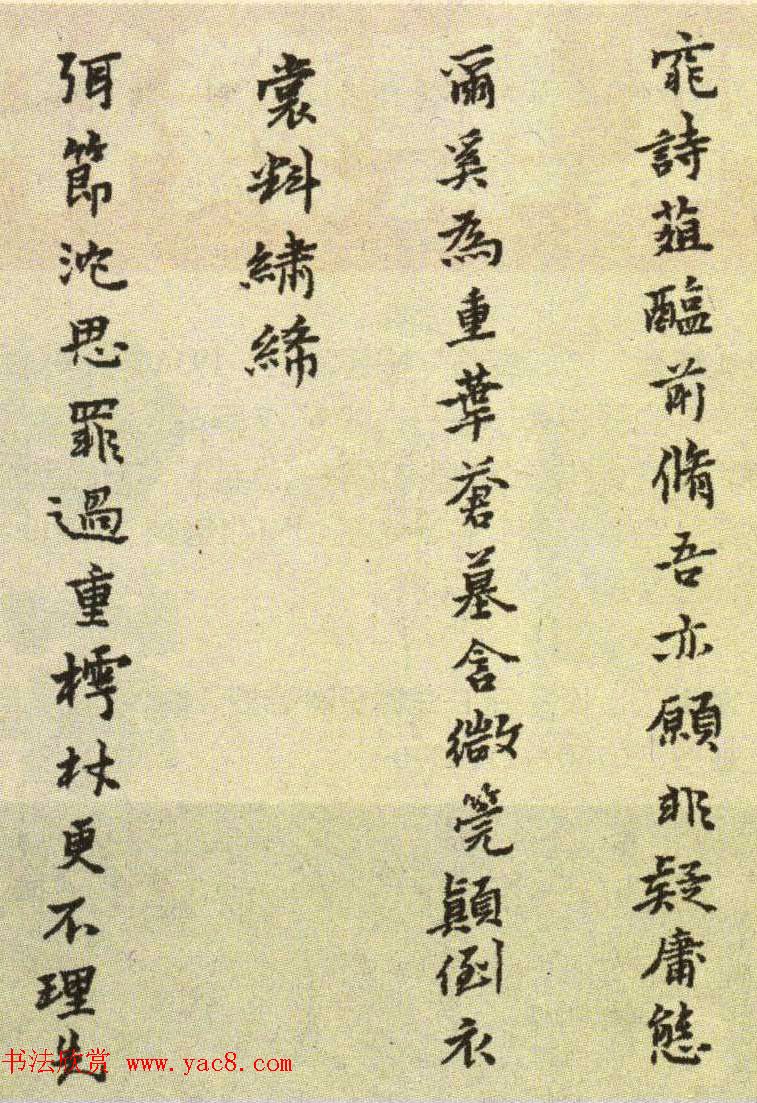 詩葅醢前脩吾亦願非疑庸態
爾奚為重華蒼墓含微筦顛倒衣
裳料繡絺
弭節沱思罪過重樗杖更不理先
书法欣赏 www.yac8.com